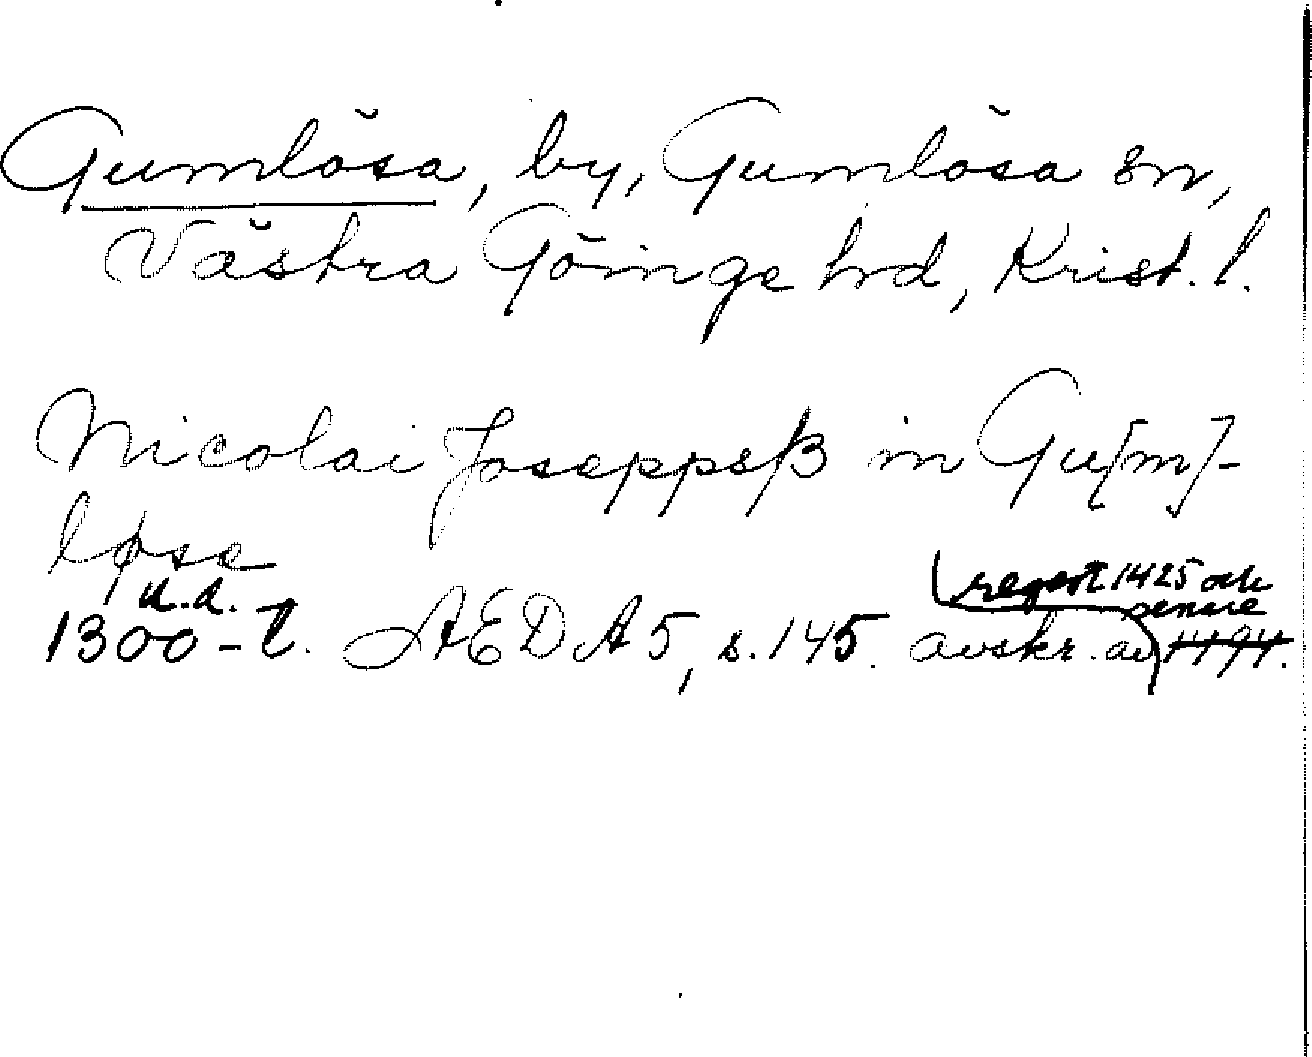 Gumlösa, by, Gumlösa sn,
Västra Göinge hd, Krist. l.
Nicolai Joseppsß in Gu[m]-
løse
u.d. regest 1425 och
senare
1300-t. AEDA 5, s. 145. avskr. av 1494.